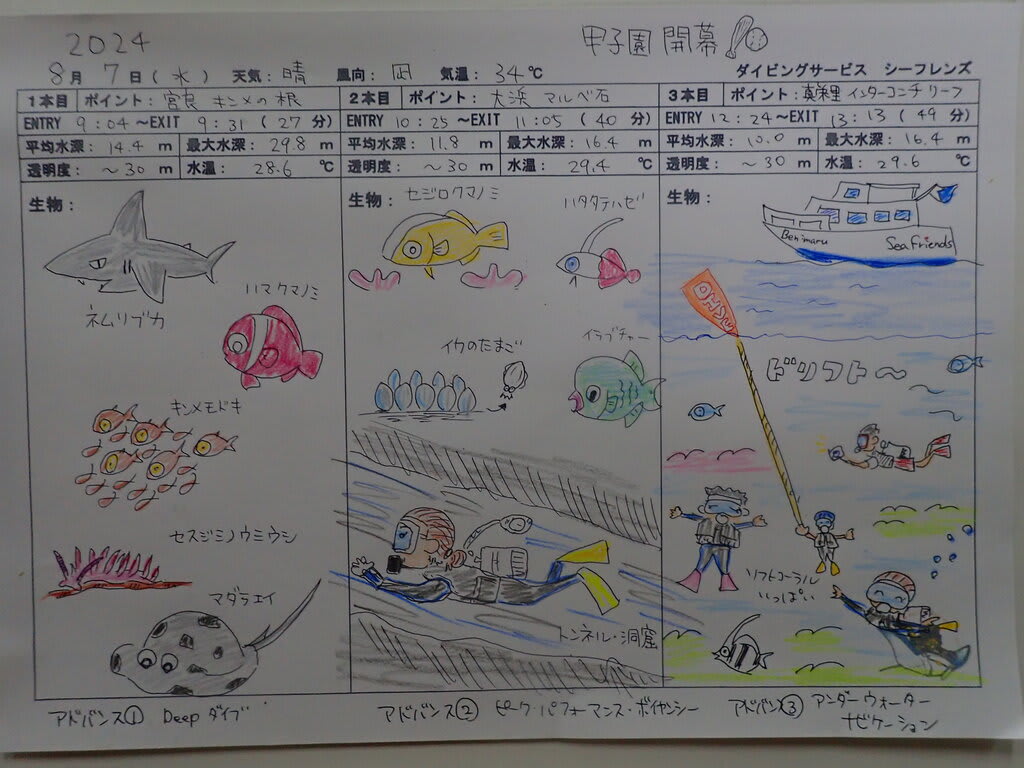 2024
甲子園 開幕
8月 7日(水) 天気:晴 風向:凪 気温:34℃
ダイビングサービス シーフレンズ
1本目 ポイント:宮良 キンメの根
ENTRY 9:04~EXIT 9:31 (27 分)
平均水深:14.4 m 最大水深:29.8 m
透明度:~30 m 水温:28.6 ℃
生物:
ネムリブカ
ハマクマノミ
キンメモドキ
セスジミノウミウシ
マダラエイ
アドバンス① Deep ダイブ
2本目 ポイント:大浜 マルベ石
ENTRY 10:25~EXIT 11:05 (40 分)
平均水深:11.8 m 最大水深:16.4 m
透明度:~30 m 水温:29.4 ℃
生物:
セジロクマノミ
ハタタテハゼ
イカのたまご
イラブチャー
トンネル・洞窟
アドバンス② ピーク・パフォーマンス・ボイヤンシー
3本目 ポイント:真栄里 インターコンチ リーフ
ENTRY 12:24~EXIT 13:13 (49 分)
平均水深:10.0 m 最大水深:16.4 m
透明度:~30 m 水温:29.6 ℃
生物:
Benimaru
Sea friends
OHSU
ドリフト~
ソフトコーラル
いっぱい
アドバンス③ アンダーウォーター
ナビゲーション